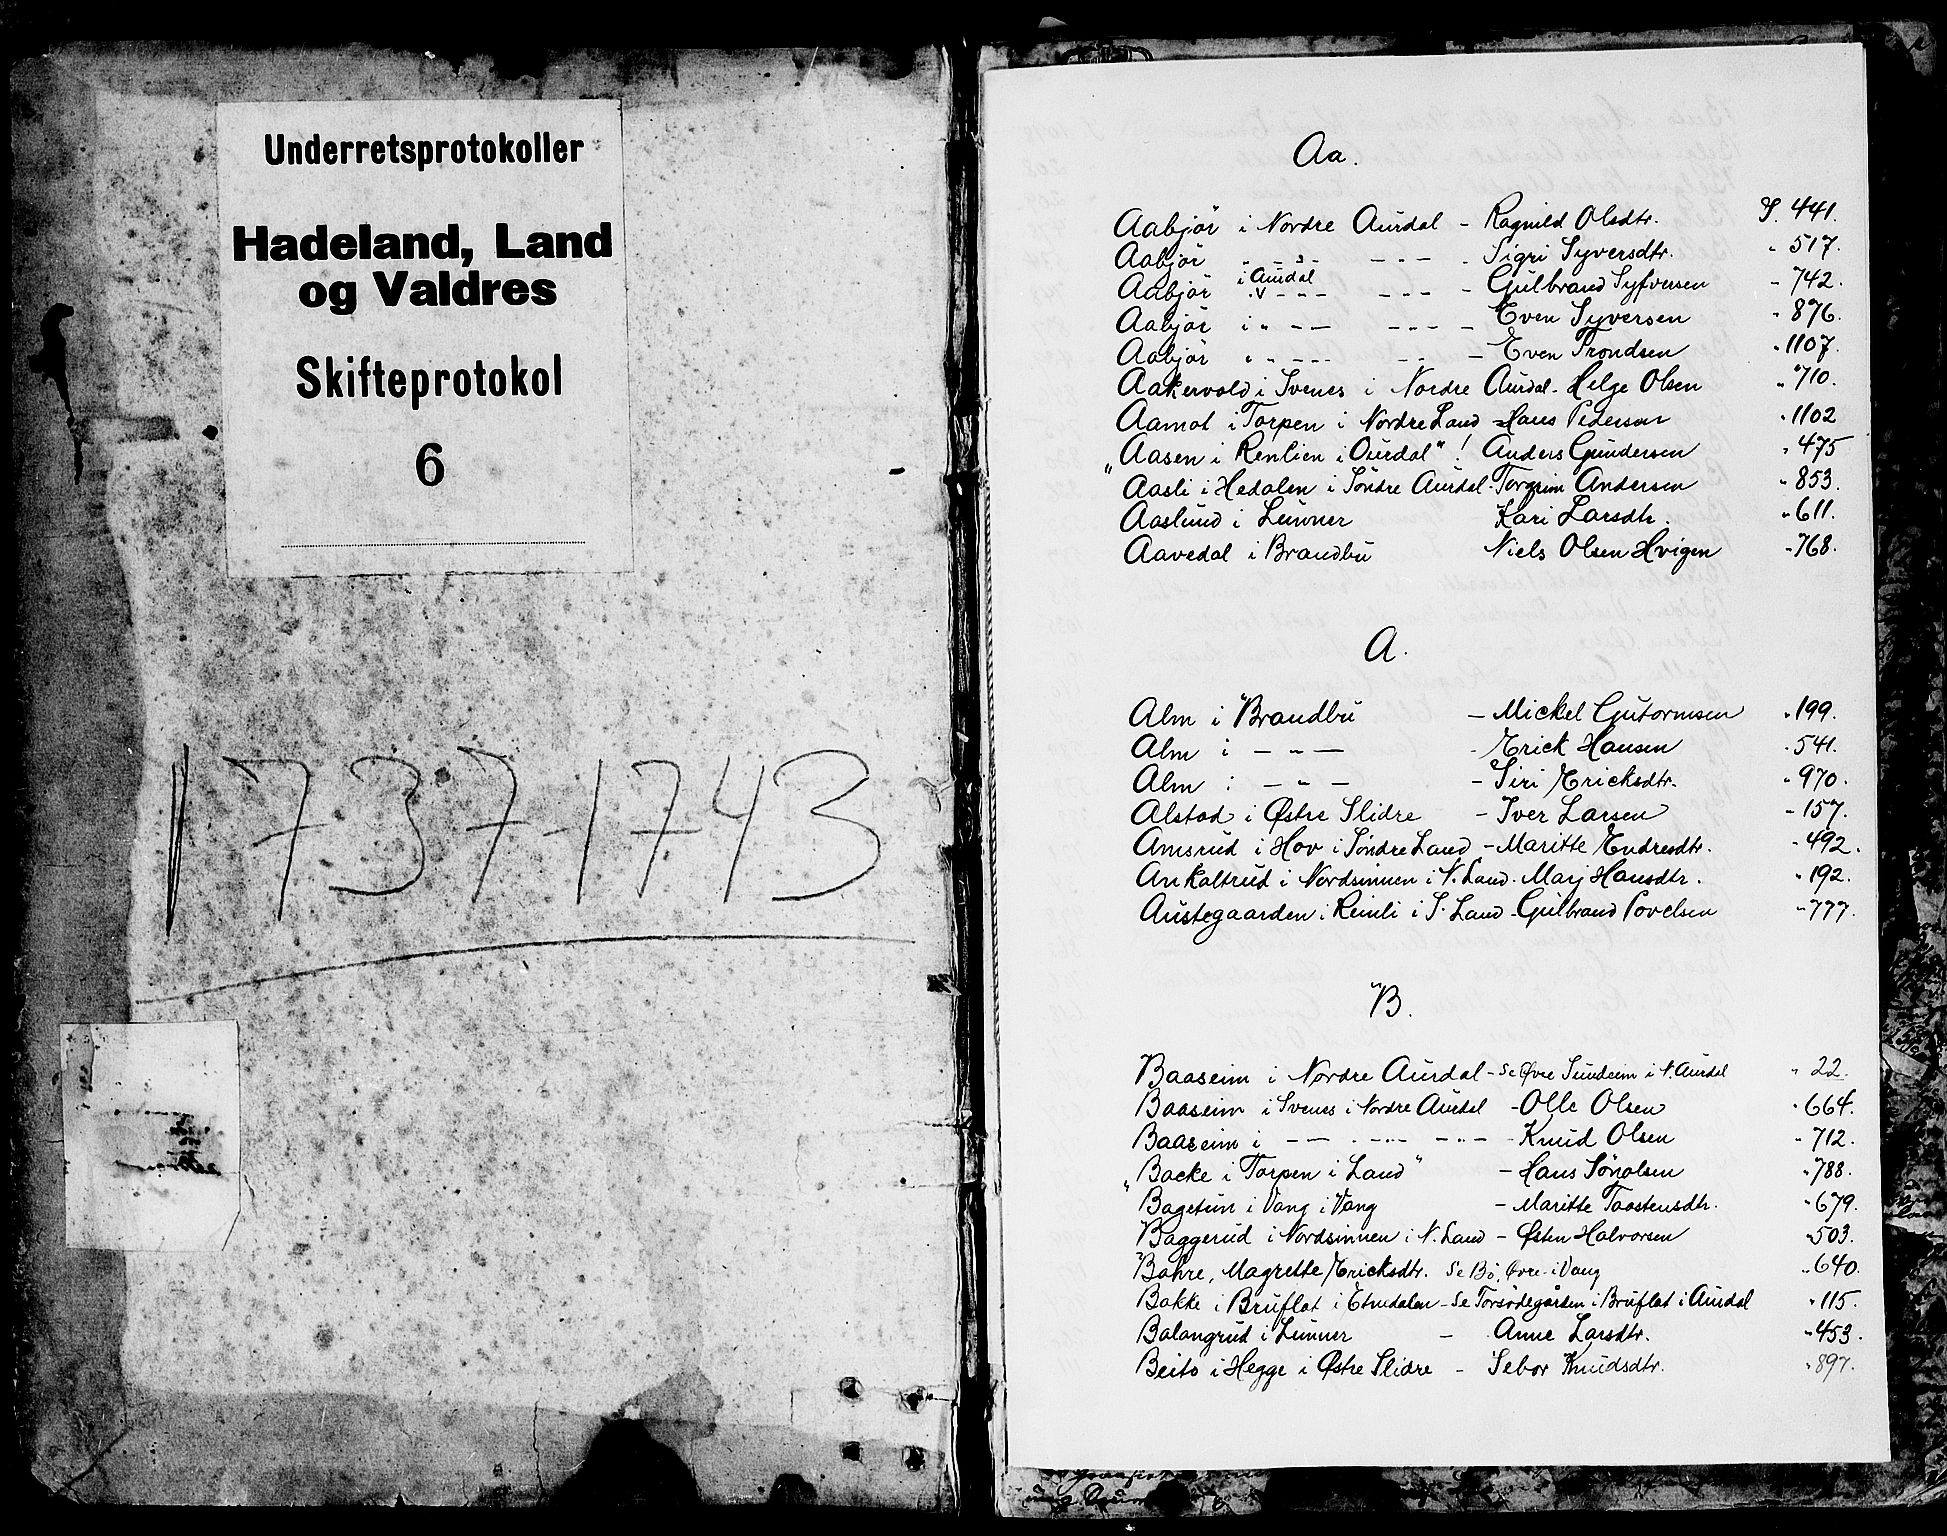 Underretsprotokoller
Hadeland, Land
og Valdres
Skifteprotokol
6
1737-1743
Aa.
Aabjör i Nordre Aurdal - Ragnild Olsdtr. S. 441.
Aabjör - " - - - - - Sigri Syversdtr. " 517.
Aabjör i Aurdal - - - - Gulbrand Syfversen " 742.
Aabjör i " - - - - - - Even Syversen " 876.
Aabjör " " - - - - - - Even Trondsen " 1107.
Aakervold i Svenes i Nordre Aurdal - Helge Olsen " 710.
Aamot i Torpen i Nordre Land - Hans Pedersen " 1102
"Aasen i Renlien i Ourdal"! Anders Gundersen " 475
Aasli i Hedalen i Söndre Aurdal - Torgrim Andersen " 853.
Aaslund i Lunner Kari Larsdtr. " 611.
Aavedal i Brandbu Niels Olsen Hvigen " 768.
A.
Alm i Brandbu - Mickel Gutormsen " 199.
Alm i - " - - Erick Hansen " 541.
Alm i - " - - Siri Ericksdtr. " 970.
Alstad i Østre Slidre - Iver Larsen " 157.
Amsrud i Hov i Søndre Land - Maritte Endresdtr. " 492.
Ankaltrud i Nordsinnen i N. Land - Marj Hansdtr. " 192.
Austegaarden i Reinli i S. Land - Gulbrand Povelsen " 777.
B.
Baaseim i Nordre Aurdal - Se Øvre Sundeim i N. Aurdal " 22.
Baaseim i Svenes i Nordre Aurdal - Olle Olsen " 664.
Baaseim i - - - " - - " - - Knud Olsen " 712.
"Backe i Torpen i Land" - Hans Sönolsen " 788.
Bagetun i Vang i Vang - Maritte Taastensdtr. " 679.
Baggerud i Nordsinnen i N. Land - Østen Halvorsen " 503.
Bahre, Magrette Ericksdtr. Se Bö, Øvre i Vang " 640.
Bakke i Bruflat i Etnedalen - Se Torsødegården i Bruflat i Aurdal " 115.
Balangrud i Lunner - Anne Larsdtr. " 453.
Beito i Hegge i Østre Slidre - Sebor Knudsdtr. " 897.